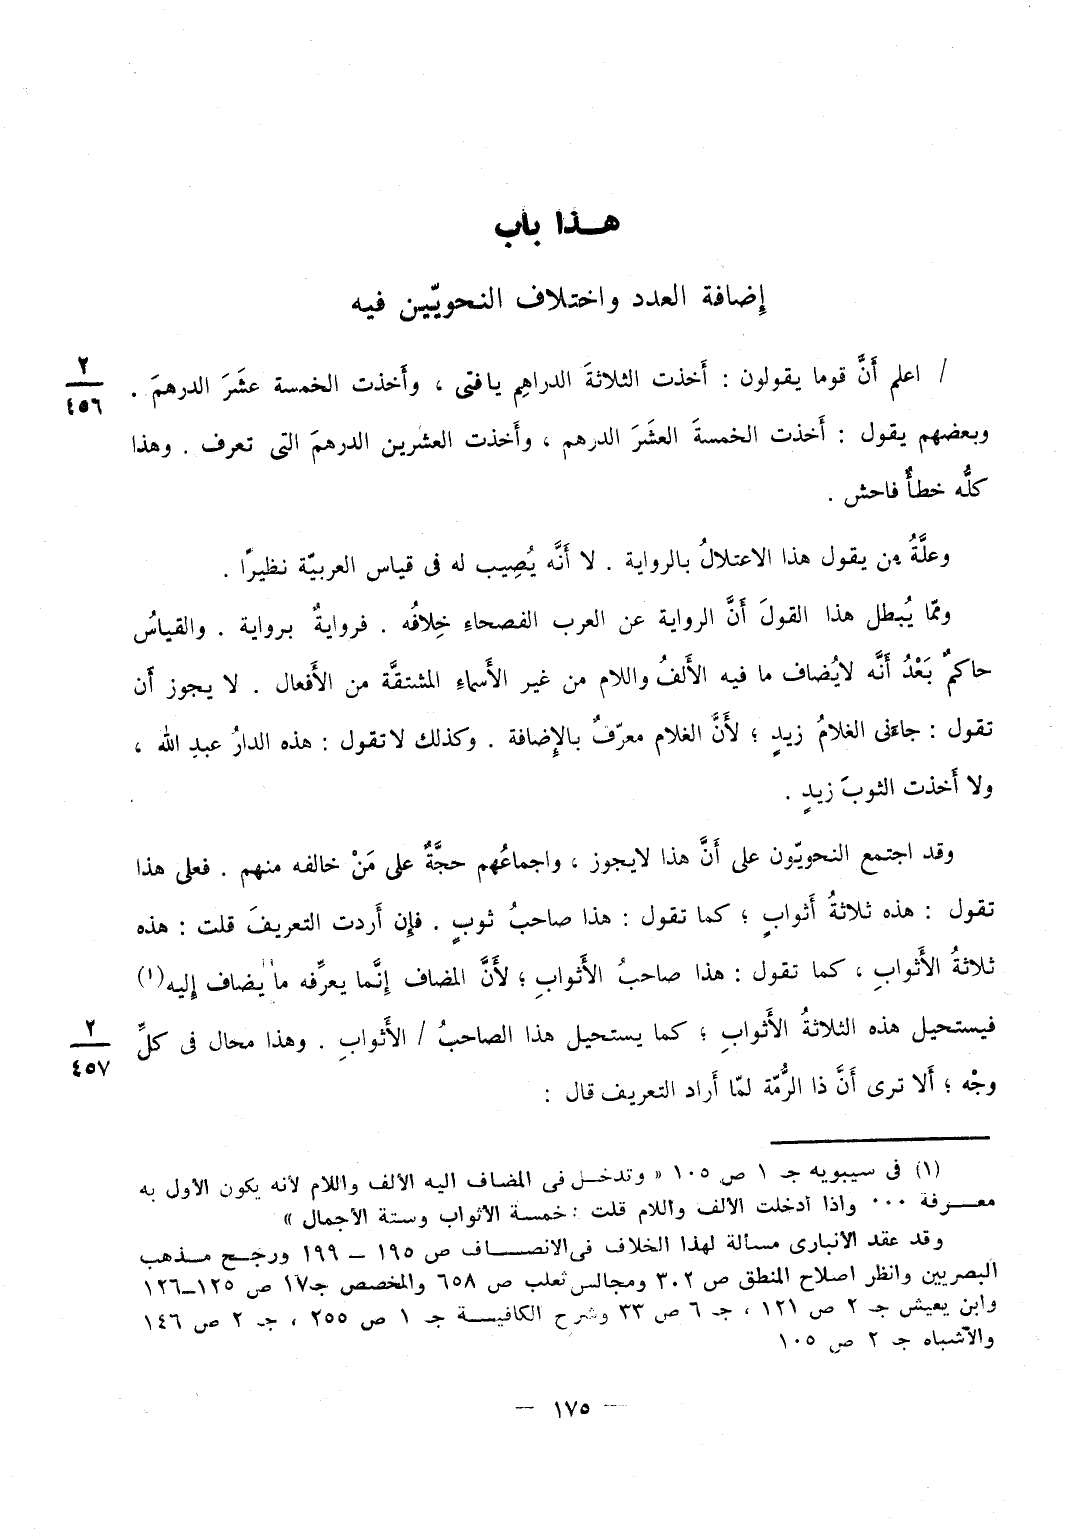 هـذا باب
إضافة العدد واختلاف النحويّين فيه
/ اعلم أَنَّ قوما يقولون : أَخذت الثلاثةَ الدراهِم يا فتى ، وأَخذت الخمسة عشَرَ الدرهمَ .
٢
٤٥٦
وبعضهم يقول : أَخذت الخمسةَ العشَرَ الدرهم ، وأَخذت العشرين الدرهمَ التى تعرف . وهذا
كلُّه خطأٌ فاحش .
وعلَّةُ من يقول هذا الاعتلالُ بالرواية . لا أَنَّه يُصِيب له فى قياس العربيّة نظيرًا .
وممّا يُبطل هذا القولَ أَنَّ الرواية عن العرب الفصحاءِ خِلافُه . فروايةٌ برواية . والقياسُ
حاكمٌ بَعْدُ أَنَّه لايُضاف ما فيه الأَلفُ واللام من غير الأَسماءِ المشتقَّة من الأَفعال . لا يجوز أَن
تقول : جاءَنى الغلامُ زيدٍ ؛ لأَنَّ الغلام معرّفٌ بالإِضافة . وكذلك لاتقول : هذه الدارُ عبدِ الله ،
ولا أَخذت الثوبَ زيدٍ .
وقد اجتمع النحويّون على أَنَّ هذا لايجوز ، واجماعُهم حجَّةٌ على مَنْ خالفه منهم . فعلى هذا
تقول : هذه ثلاثةُ أَثوابٍ ؛ كما تقول : هذا صاحبُ ثوبٍ . فإِن أَردت التعريفَ قلت : هذه
ثلاثةُ الأَثوابِ ، كما تقول : هذا صاحبُ الأَثوابِ ؛ لأَنَّ المضاف إِنَّما يعرِّفه ما يضاف إِليه(١)
فيستحيل هذه الثلاثةُ الأَثوابِ ؛ كما يستحيل هذا الصاحبُ / الأَثوابِ . وهذا محال فى كلِّ
٢
٤٥٧
وجْه ؛ أَلا ترى أَنَّ ذا الرُّمّة لمّا أَراد التعريف قال :
(١) فى سيبويه جـ ١ ص ١٠٥ « وتدخـل فى المضاف اليه الألف واللام لأنه يكون الأول به
معـــرفة ٠٠٠ واذا أدخلت الألف واللام قلت : خمسة الأثواب وستة الأجمال »
وقد عقد الأنبارى مسألة لهذا الخلاف فى الانصـــاف ص ١٩٥ – ١٩٩ ورجـــح مـــذهب
البصريين وانظر اصلاح المنطق ص ٣٠٢ ومجالس ثعلب ص ٦٥٨ والمخصص جـ١٧ ص ١٢٥–١٢٦
وابن يعيش جـ ٢ ص ١٢١ ، جـ ٦ ص ٣٣ وشرح الكافيـــة جـ ١ ص ٢٥٥ ، جـ ٢ ص ١٤٦
والأشباه جـ ٢ ص ١٠٥
— ١٧٥ —